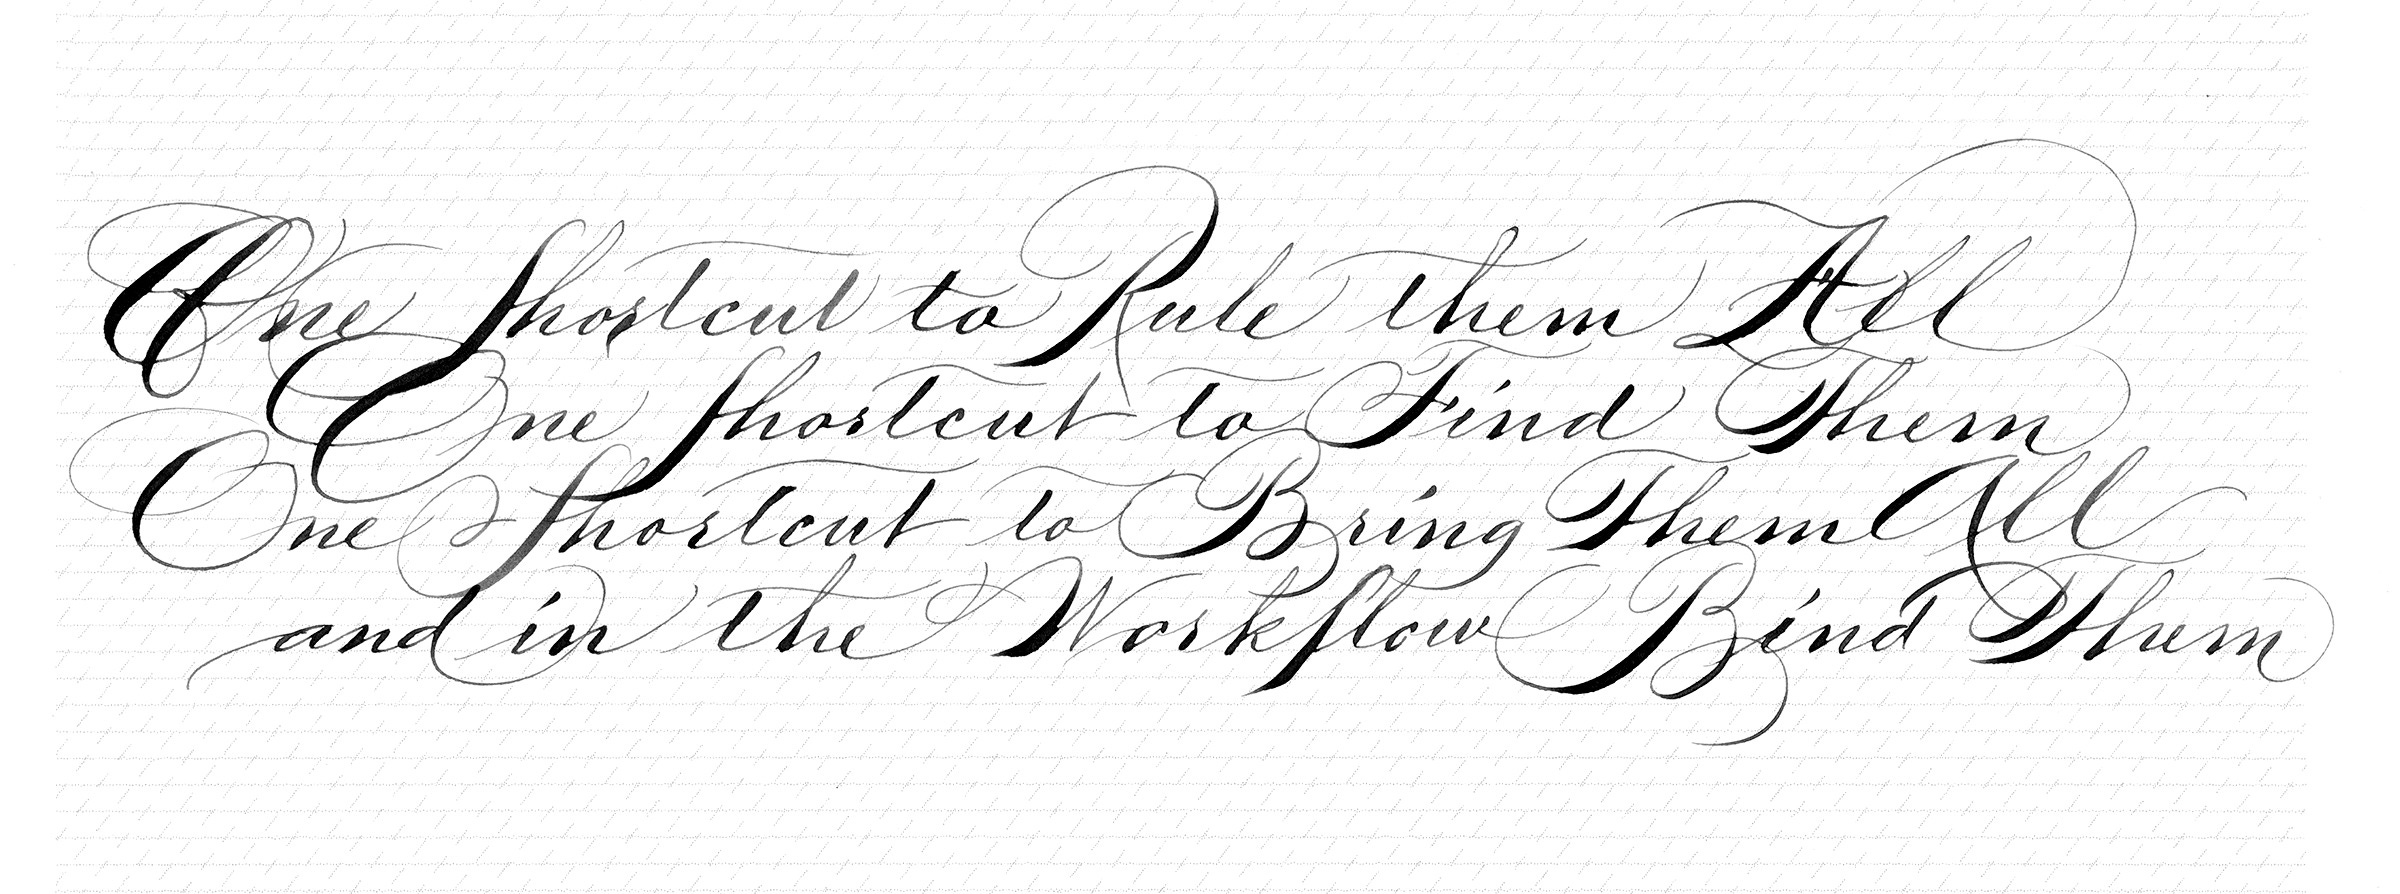 One Shortcut to Rule them All
One Shortcut to Find Them
One Shortcut to Bring Them All
and in the Workflow Bind Them